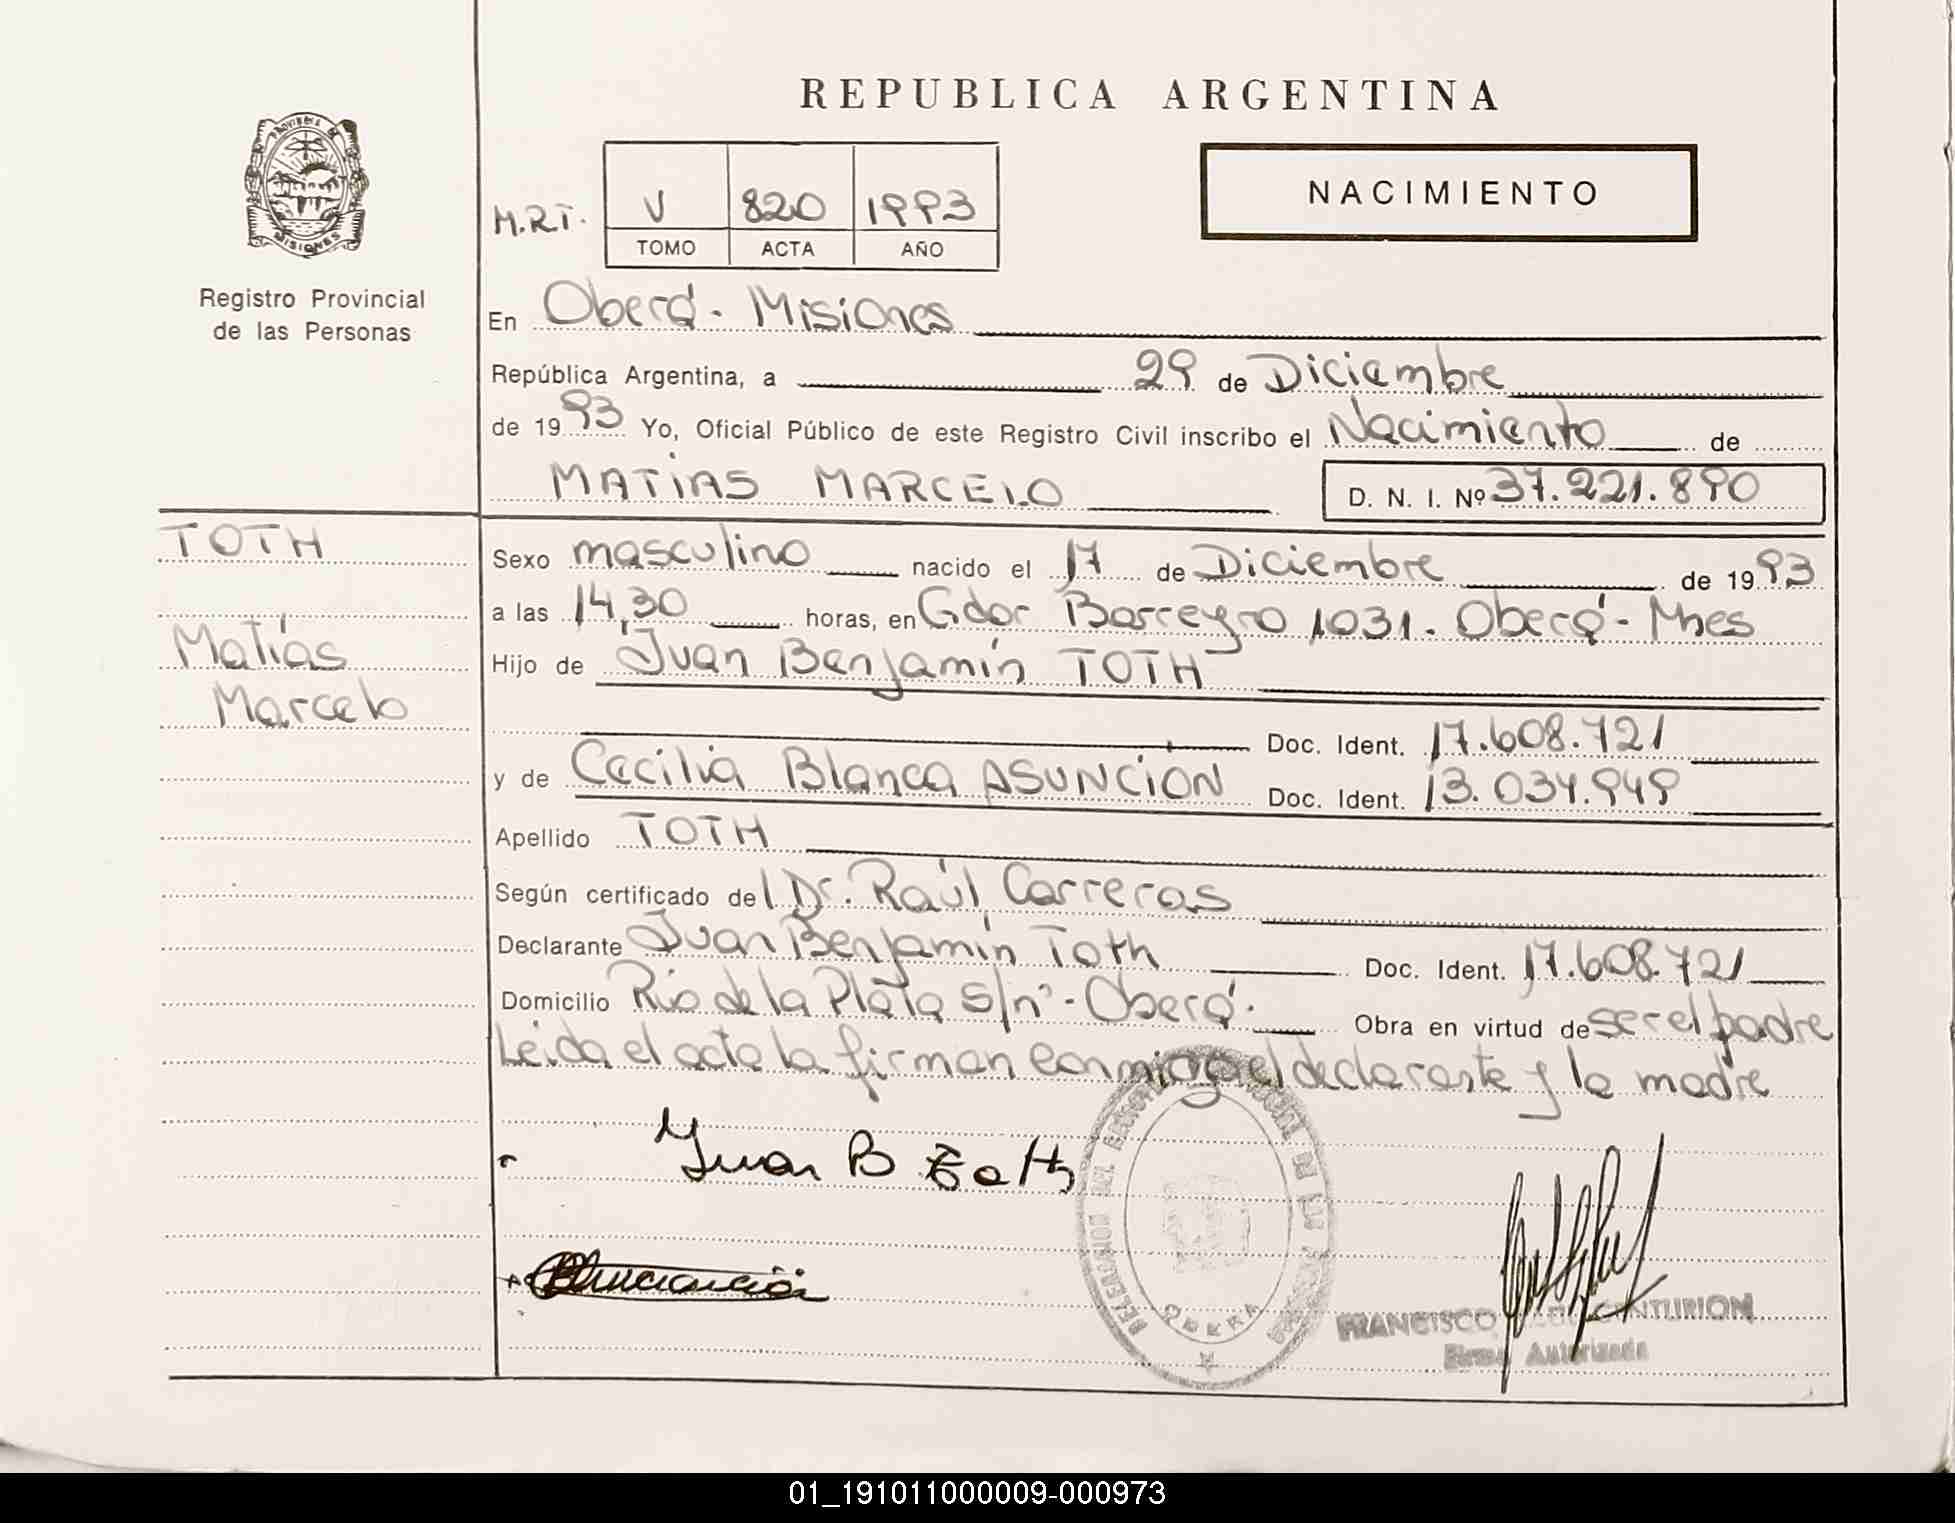 REPUBLICA ARGENTINA
PROVINCIA DE
MISIONES
Registro Provincial
de las Personas
NACIMIENTO
M.R.T. V 820 1993
TOMO ACTA AÑO
En Oberá - Misiones
República Argentina, a 29 de Diciembre
de 1993 Yo, Oficial Público de este Registro Civil inscribo el Nacimiento de
MATIAS MARCELO D. N. I. Nº 37.221.890
TOTH
Matías
Marcelo
Sexo masculino nacido el 17 de Diciembre de 1993
a las 14,30 horas, en Gdor Barreyro 1031. Oberá - Mnes
Hijo de Juan Benjamín TOTH
Doc. Ident. 17.608.721
y de Cecilia Blanca ASUNCIÓN Doc. Ident. 13.034.949
Apellido TOTH
Según certificado del Dr. Raúl Carreras
Declarante Juan Benjamín Toth Doc. Ident. 17.608.721
Domicilio Río de la Plata s/nº - Oberá. Obra en virtud de ser el padre
Leída el acta la firman conmigo el declarante y la madre
Juan B Toth
DELEGACION DEL REGISTRO DE LAS
OBERA
FRANCISCO CENTURION
Firma Autorizada
01_191011000009-000973